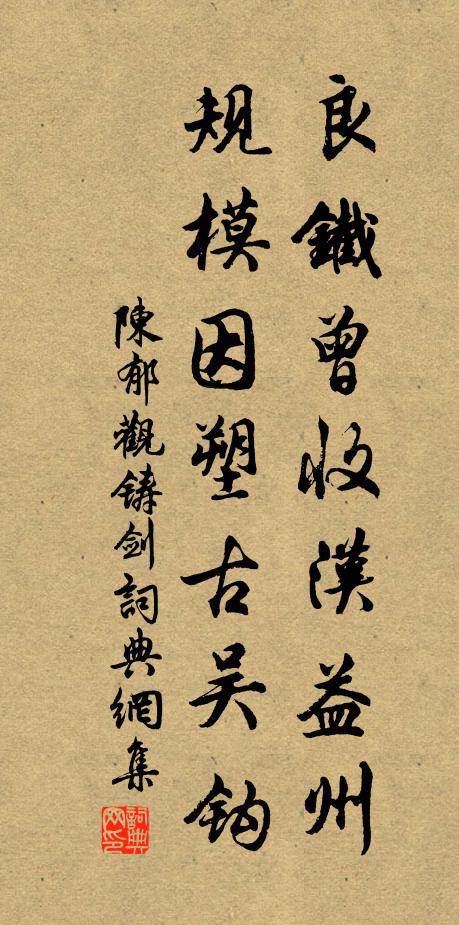 良鐵曾收漢益州
規模因塑古吴鈎
陳郁觀鑄劍詞典網集
詞典网印